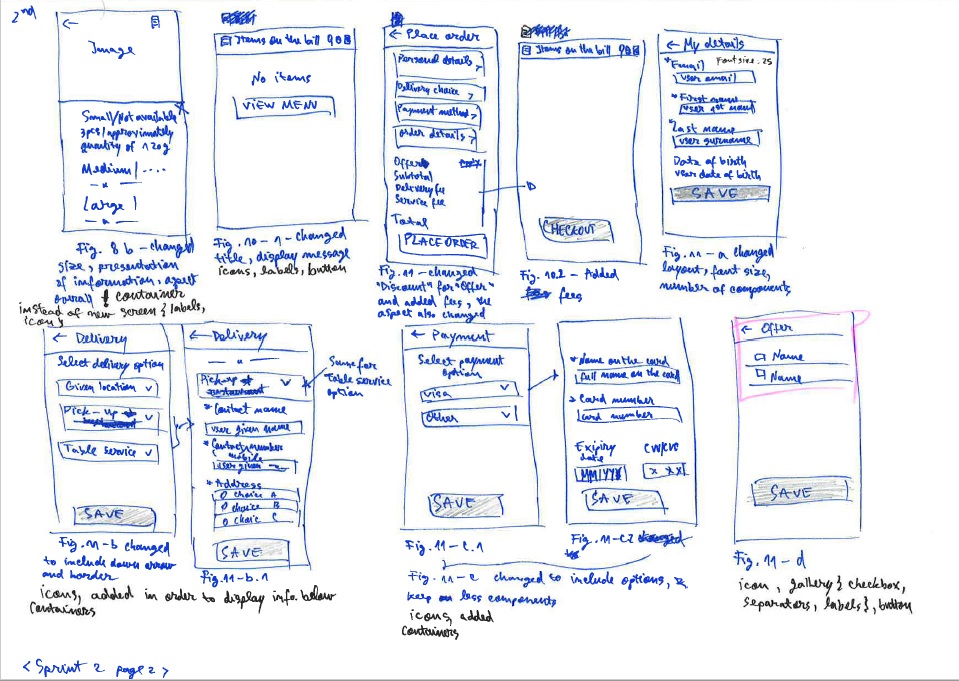 2nd
←
Image
Small/Not available
3pcs/approximately
quantity of 120g
Medium/....
Large |
Fig. 8 b - changed
size, presentation
of information, aspect
overall
! container
instead of new screen { labels,
icon }
Items on the bill
No items
VIEW MENU
Fig. 10 - 1 - changed
title, display message
icons, labels, button
← Place order
Personal details >
Delivery choice >
Payment method >
Order details >
Offer
Subtotal
Delivery fee
Service fee
Total
PLACE ORDER
Fig. 11 - changed
"Discount" for "Offer"
and added fees, the
aspect also changed
Items on the bill
CHECKOUT
Fig. 10.2 - Added
fees
← My details
*Email Font size. 25
user email
*First name
user 1st name
*Last name
user surname
Date of birth
user date of birth
SAVE
Fig. 11 - a changed
layout, font size,
number of components
← Delivery
Select delivery option
Given location
Pick-up
Table service
SAVE
Fig. 11 - b changed
to include down arrow
and border
← Delivery
Pick-up
Same for
Table service
option
* Contact name
user given name
* Contact number
mobile
user given
* Address
O choice A
O choice B
O choice C
SAVE
Fig. 11 - b.1
icons, added in order to display info. below
containers
← Payment
Select payment
option
Visa
Other
SAVE
Fig. 11 - c.1
*Name on the card
full name on the card
* Card number
card number
Expiry
date
MM/YYY
CVV/CVC
x xx
SAVE
Fig. 11 - c.2
Fig. 11 - c changed to include options,
keep on less components
icons, added
containers
← Offer
Name
Name
SAVE
Fig. 11 - d
icon, gallery { checkbox,
separators, labels }, button
< Sprint 2 page 2 >